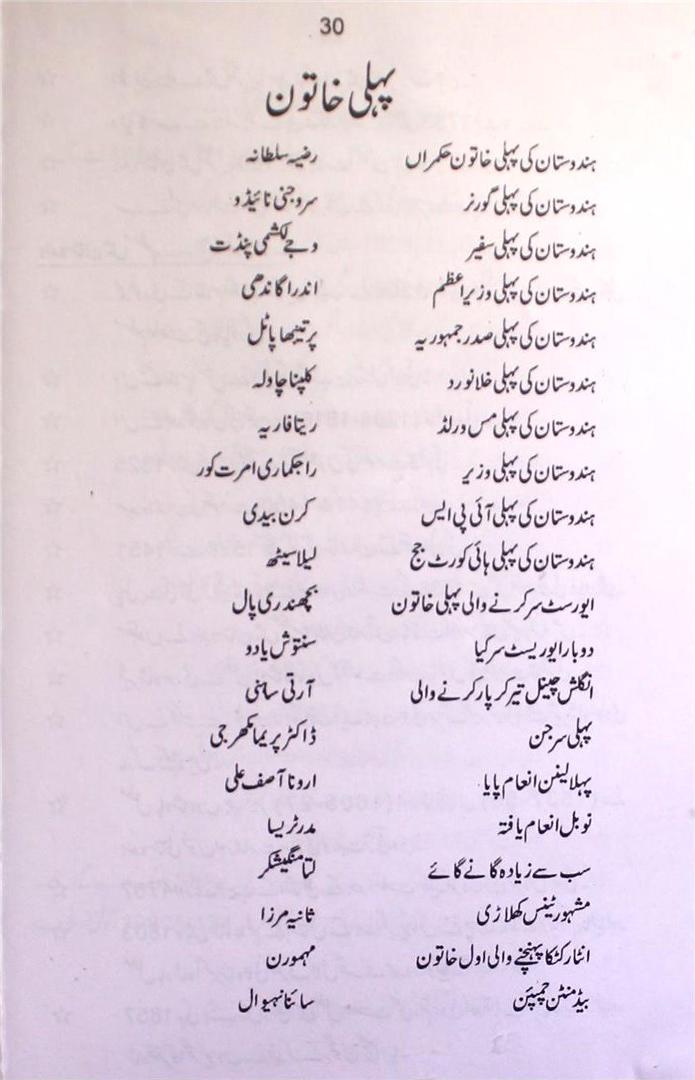 30
پہلی خاتون
ہندوستان کی پہلی خاتون حکمراں رضیہ سلطانہ
ہندوستان کی پہلی گورنر سروجنی نائیڈو
ہندوستان کی پہلی سفیر وجے لکشمی پنڈت
ہندوستان کی پہلی وزیر اعظم اندرا گاندھی
ہندوستان کی پہلی صدر جمہوریہ پرتیبھا پاٹل
ہندوستان کی پہلی خلانورد کلپنا چاولہ
ہندوستان کی پہلی مس ورلڈ ریتا فاریہ
ہندوستان کی پہلی وزیر راجکماری امرت کور
ہندوستان کی پہلی آئی پی ایس کرن بیدی
ہندوستان کی پہلی ہائی کورٹ جج لیلا سیٹھ
ایورسٹ سر کرنے والی پہلی خاتون بچھندری پال
دوبار ایوریسٹ سر کیا سنتوش یادو
انگلش چینل تیر کر پار کرنے والی آرتی ساہی
پہلی سرجن ڈاکٹر پریما مکھرجی
پہلا لینن انعام پایا ارونا آصف علی
نوبل انعام یافتہ مدر ٹریسا
سب سے زیادہ گانے گائے لتا منگیشکر
مشہور ٹینس کھلاڑی ثانیہ مرزا
انٹارکٹکا پہنچنے والی اول خاتون مہمورن
بیڈمنٹن چمپئن سائنا نہیوال